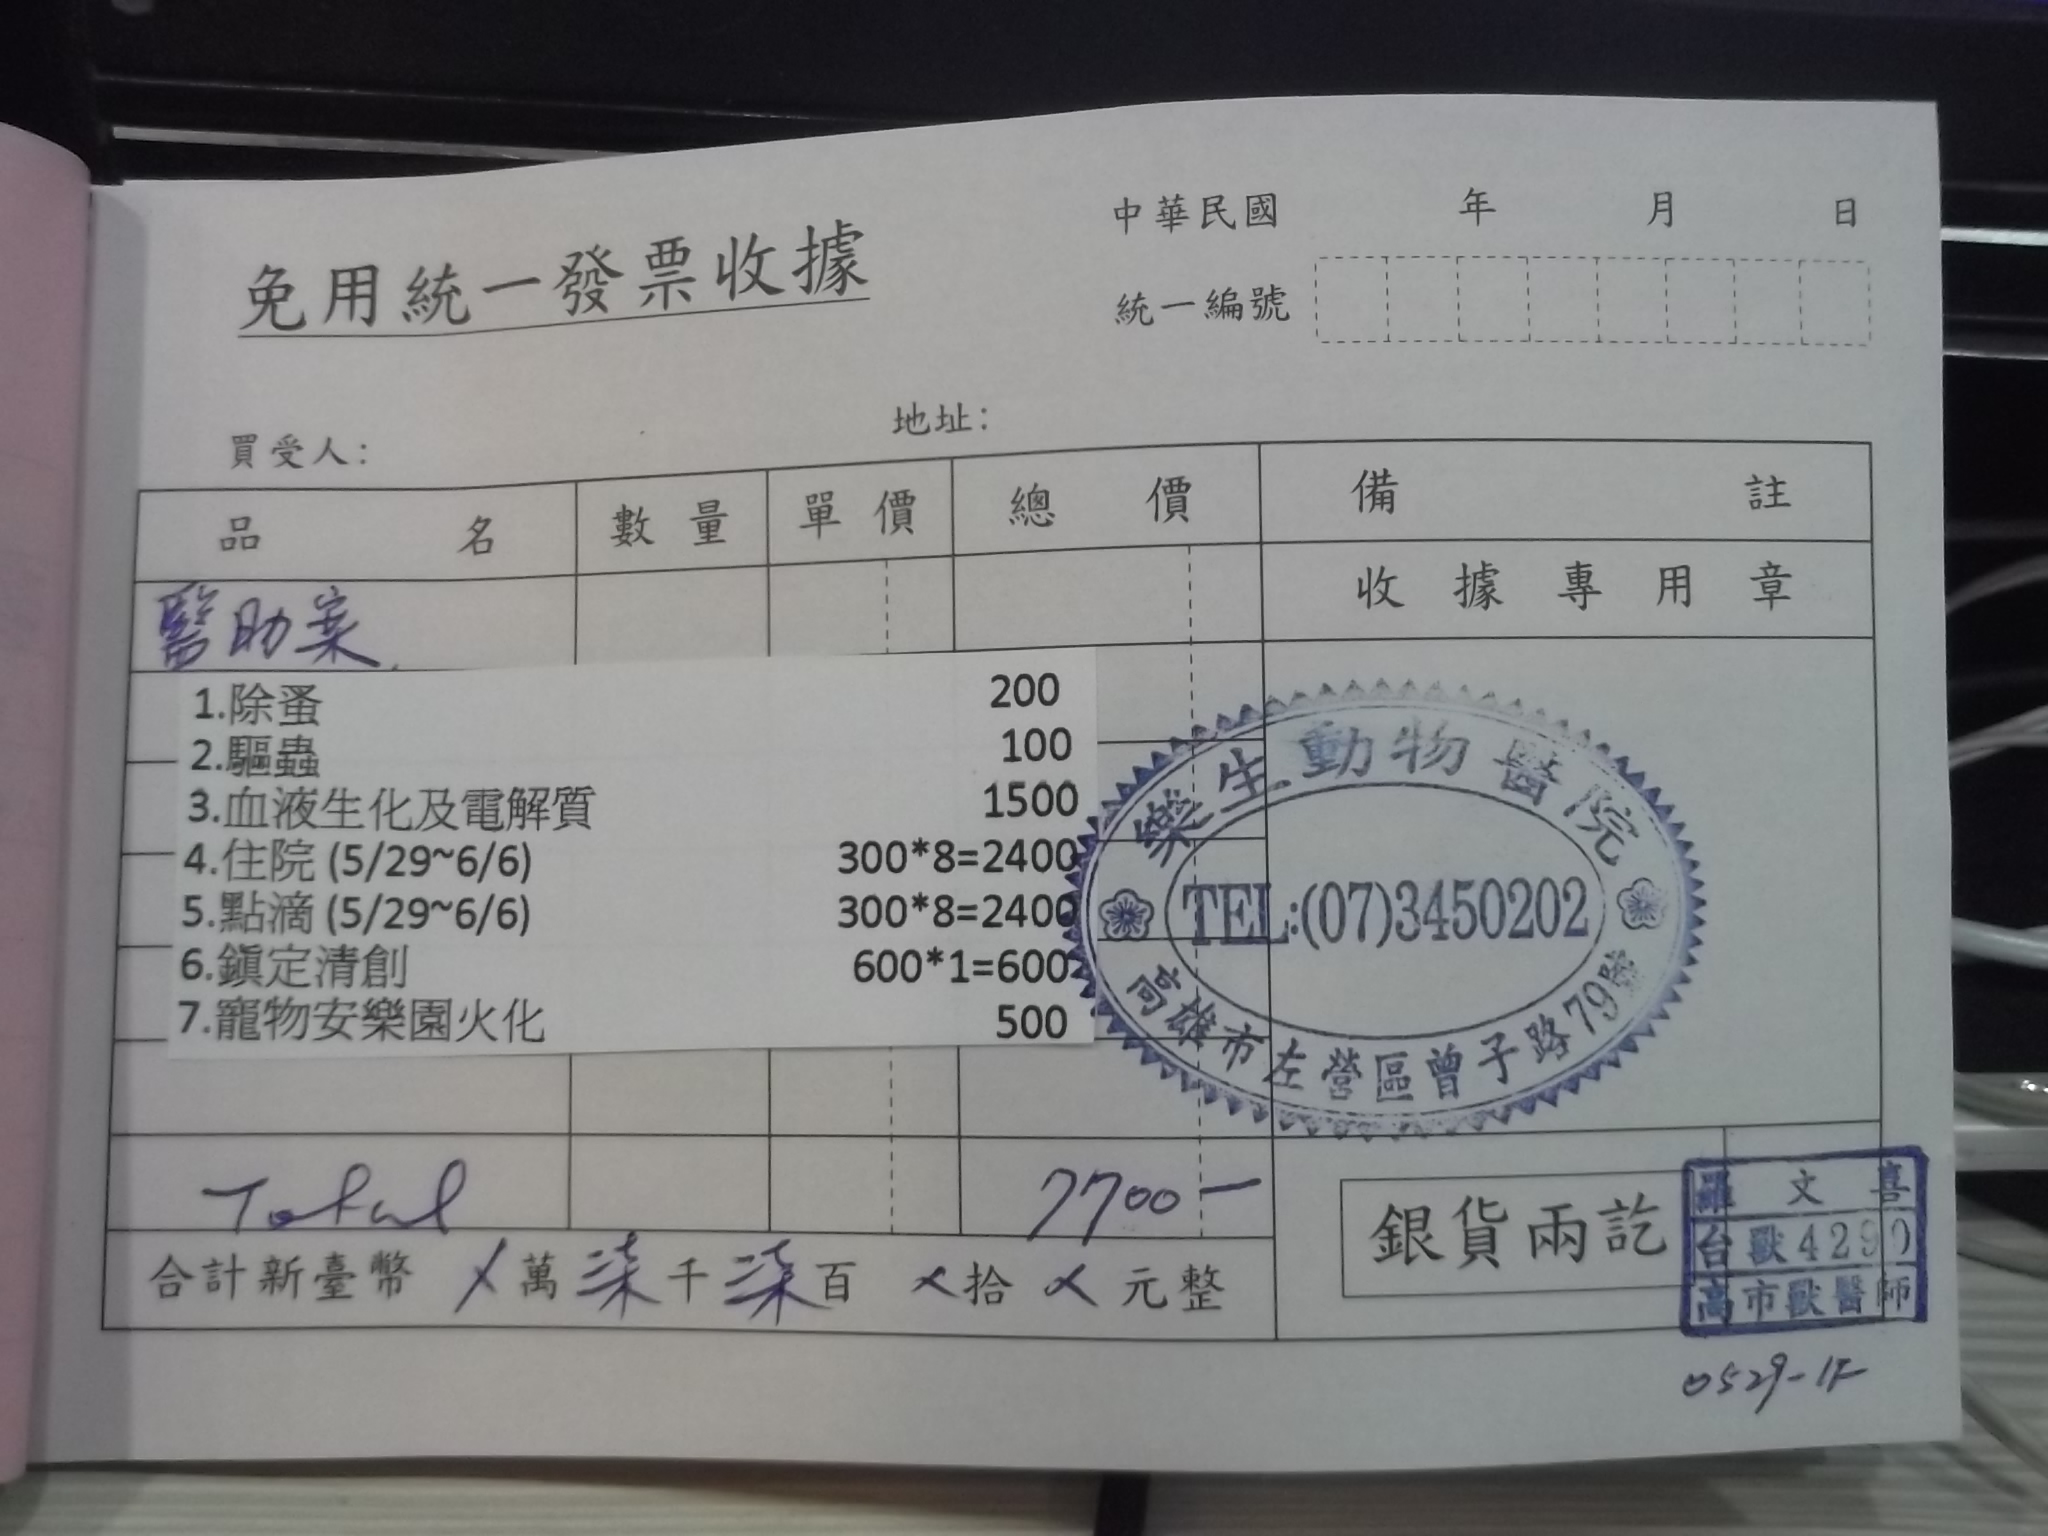 免用統一發票收據
中華民國 年 月 日
統一編號
買受人:
地址:
品名 數量 單價 總價 備註
收據專用章
醫助案
1.除蚤 200
2.驅蟲 100
3.血液生化及電解質 1500
4.住院 (5/29~6/6) 300*8=2400
5.點滴 (5/29~6/6) 300*8=2400
6.鎭定清創 600*1=600
7.寵物安樂園火化 500
樂生動物醫院
TEL:(07)3450202
高雄市左營區曾子路79號
Total 7700-
合計新臺幣 ㄨ萬柒千柒百ㄨ拾ㄨ元整
銀貨兩訖
羅文喜
台獸4290
高市獸醫師